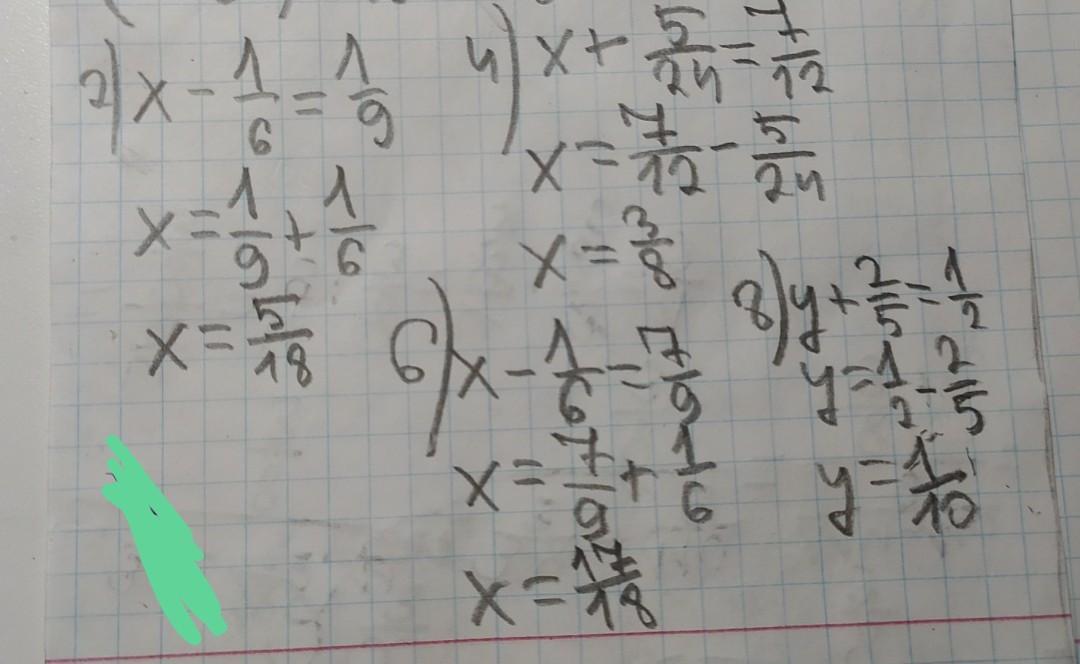 2) x - 1/6 = 1/9
x = 1/9 + 1/6
x = 5/18
4) x + 5/24 = 7/12
x = 7/12 - 5/24
x = 3/8
6) x - 1/6 = 7/9
x = 7/9 + 1/6
x = 17/18
8) y + 2/5 = 1/2
y = 1/2 - 2/5
y = 1/10